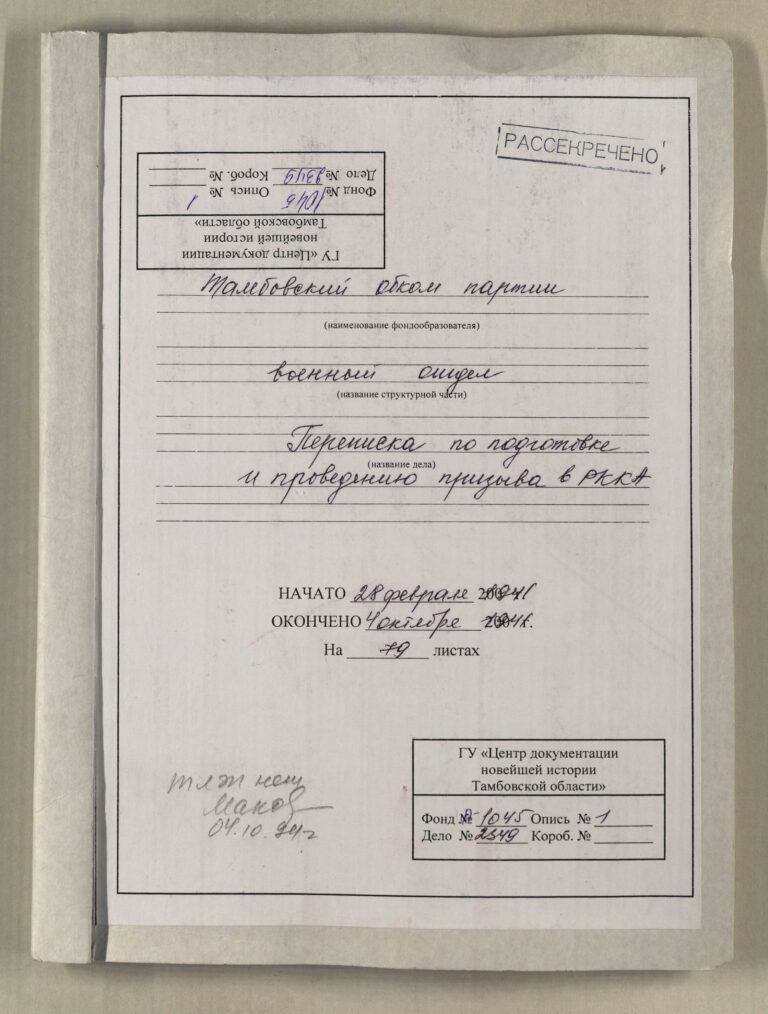 РАССЕКРЕЧЕНО
ГУ «Центр документации
новейшей истории
Тамбовской области»
Фонд № 1045 Опись № 1
Дело № 2349 Короб. №
Тамбовский обком партии
(наименование фондообразователя)
военный отдел
(название структурной части)
Переписка по подготовке
(название дела)
и проведению призыва в РККА
НАЧАТО 28 феврале 1941
ОКОНЧЕНО 4 октебре 1941г.
На 79 листах
Маков
04.10.94г
ГУ «Центр документации
новейшей истории
Тамбовской области»
Фонд № Р-1045 Опись № 1
Дело № 2349 Короб. №